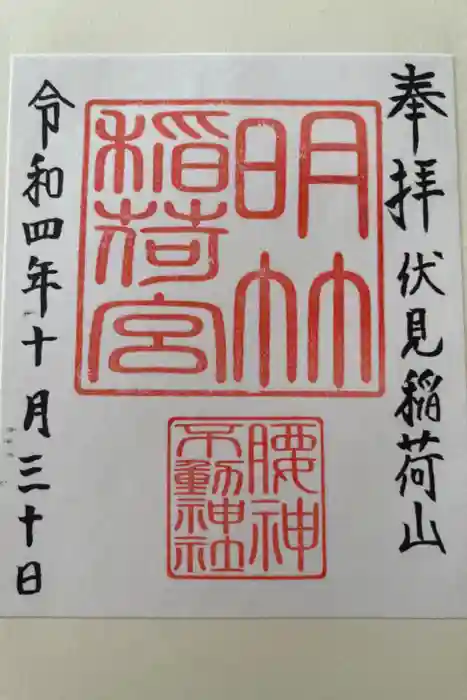 奉拝 伏見稲荷山
明竹
稲荷宮
腰神
不動神社
令和四年十月三十日